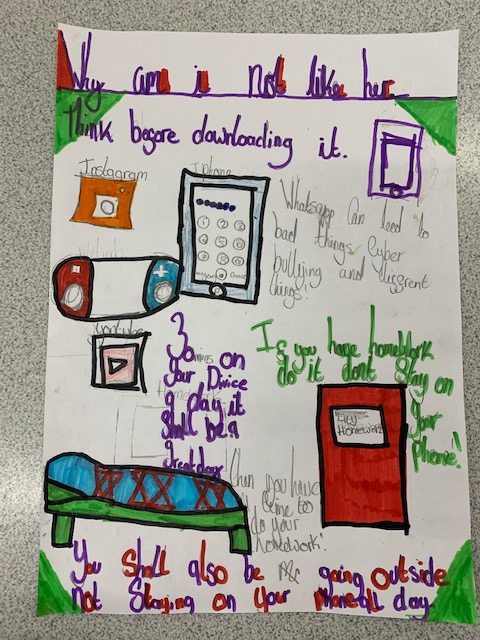 Why am i not like her
Think before downloading it.
Instagram
iphone
Whatsapp Can lead to
bad things Cyber
bullying and different
things.
Youtube
30 mins on
your Divice
play it
Shall be a
great day
If you have homework
do it dont Stay on
your
phone!
Lily
Homework
then you have
time to
do your
homework!
You Shall also be going outside
not Staying on your Phone all day